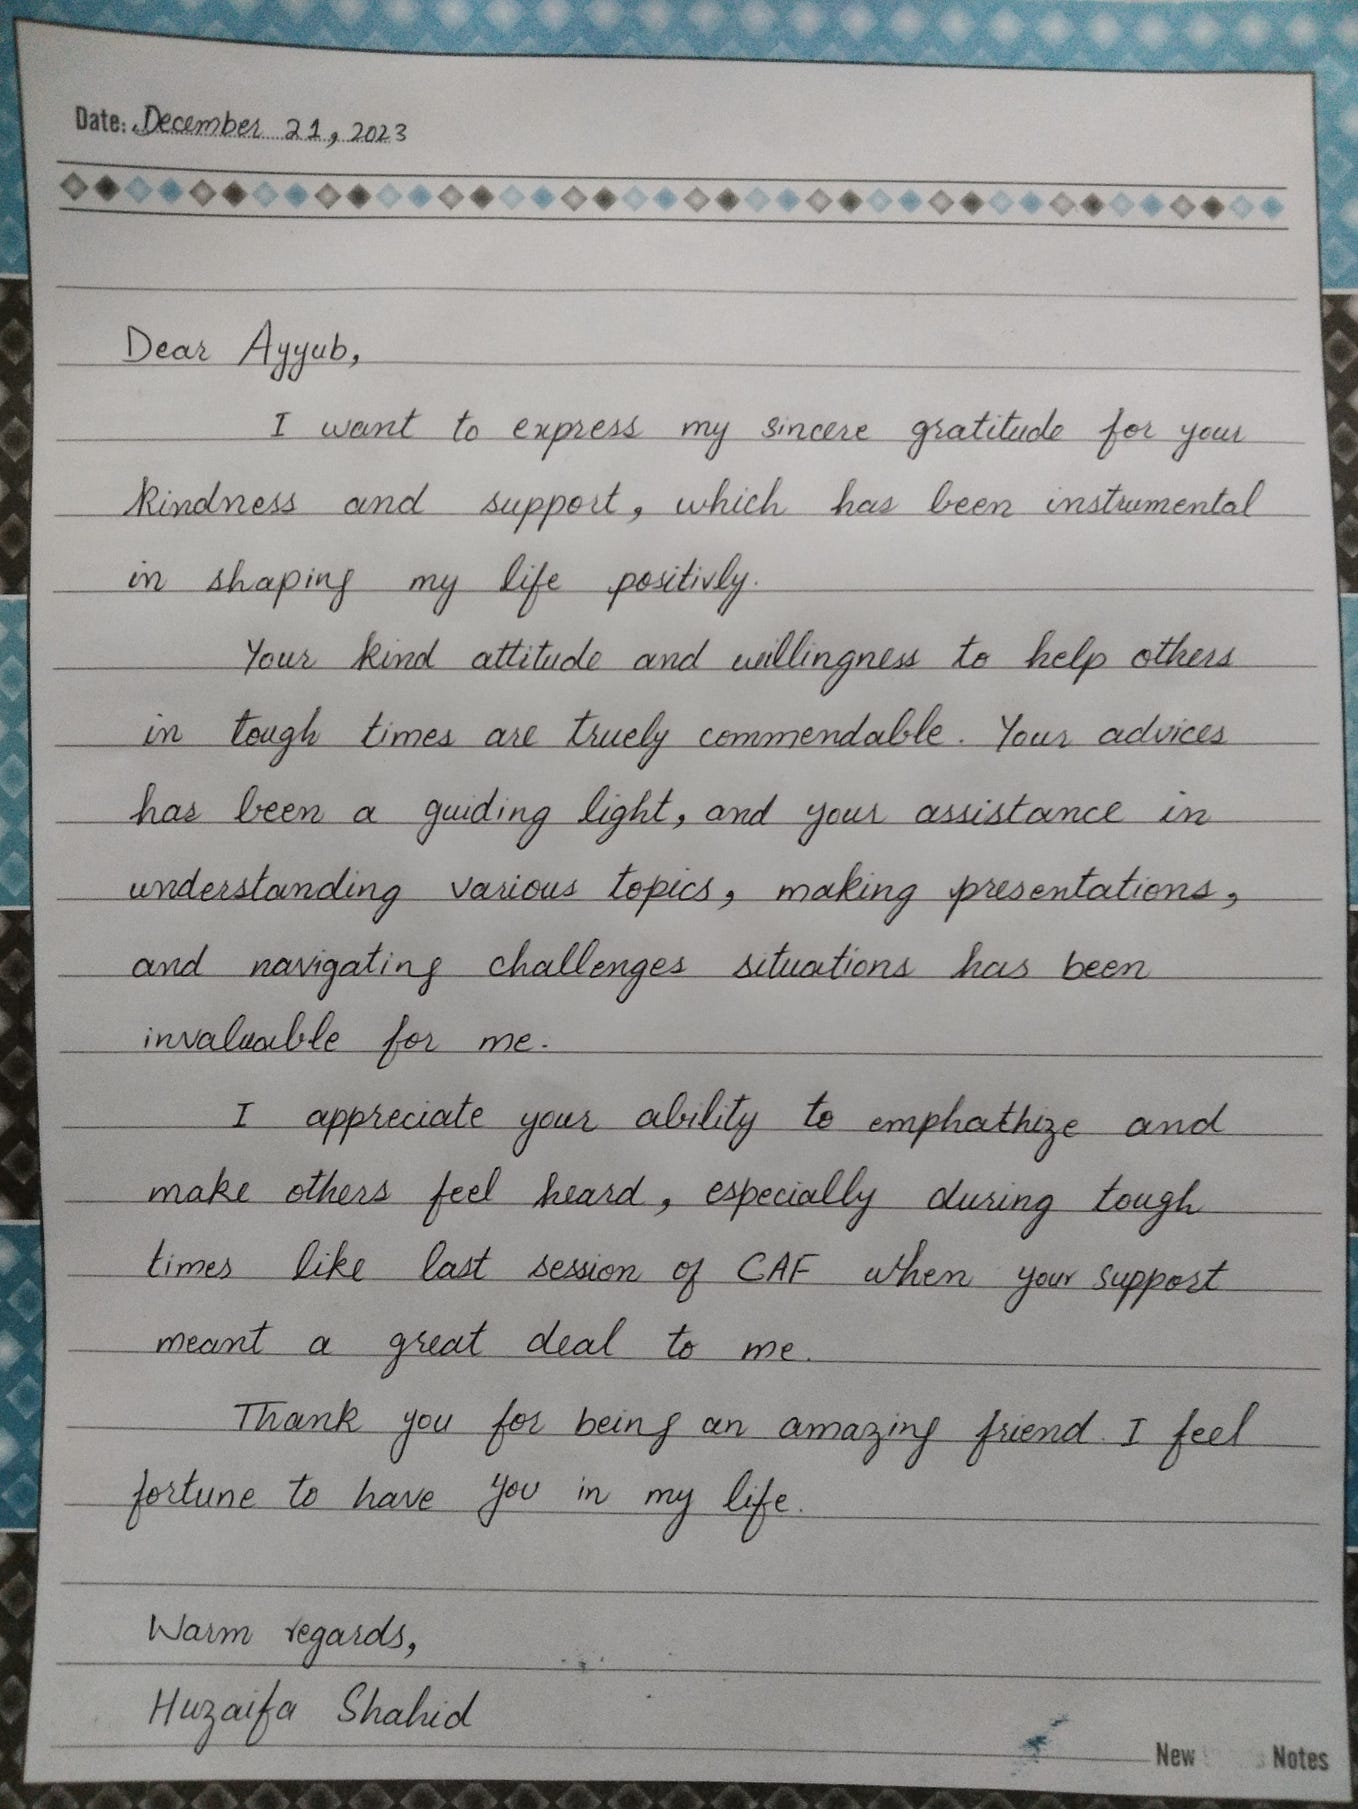 Date: December 21, 2023
Dear Ayyub,
I want to express my sincere gratitude for your
kindness and support, which has been instrumental
in shaping my life positivly.
Your kind attitude and willingness to help others
in tough times are truely commendable. Your advices
has been a guiding light, and your assistance in
understanding various topics, making presentations,
and navigating challenges situations has been
invaluable for me.
I appreciate your ability to emphathize and
make others feel heard, especially during tough
times like last session of CAF when your support
meant a great deal to me.
Thank you for being an amazing friend. I feel
fortune to have you in my life.
Warm regards,
Huzaifa Shahid
New Notes